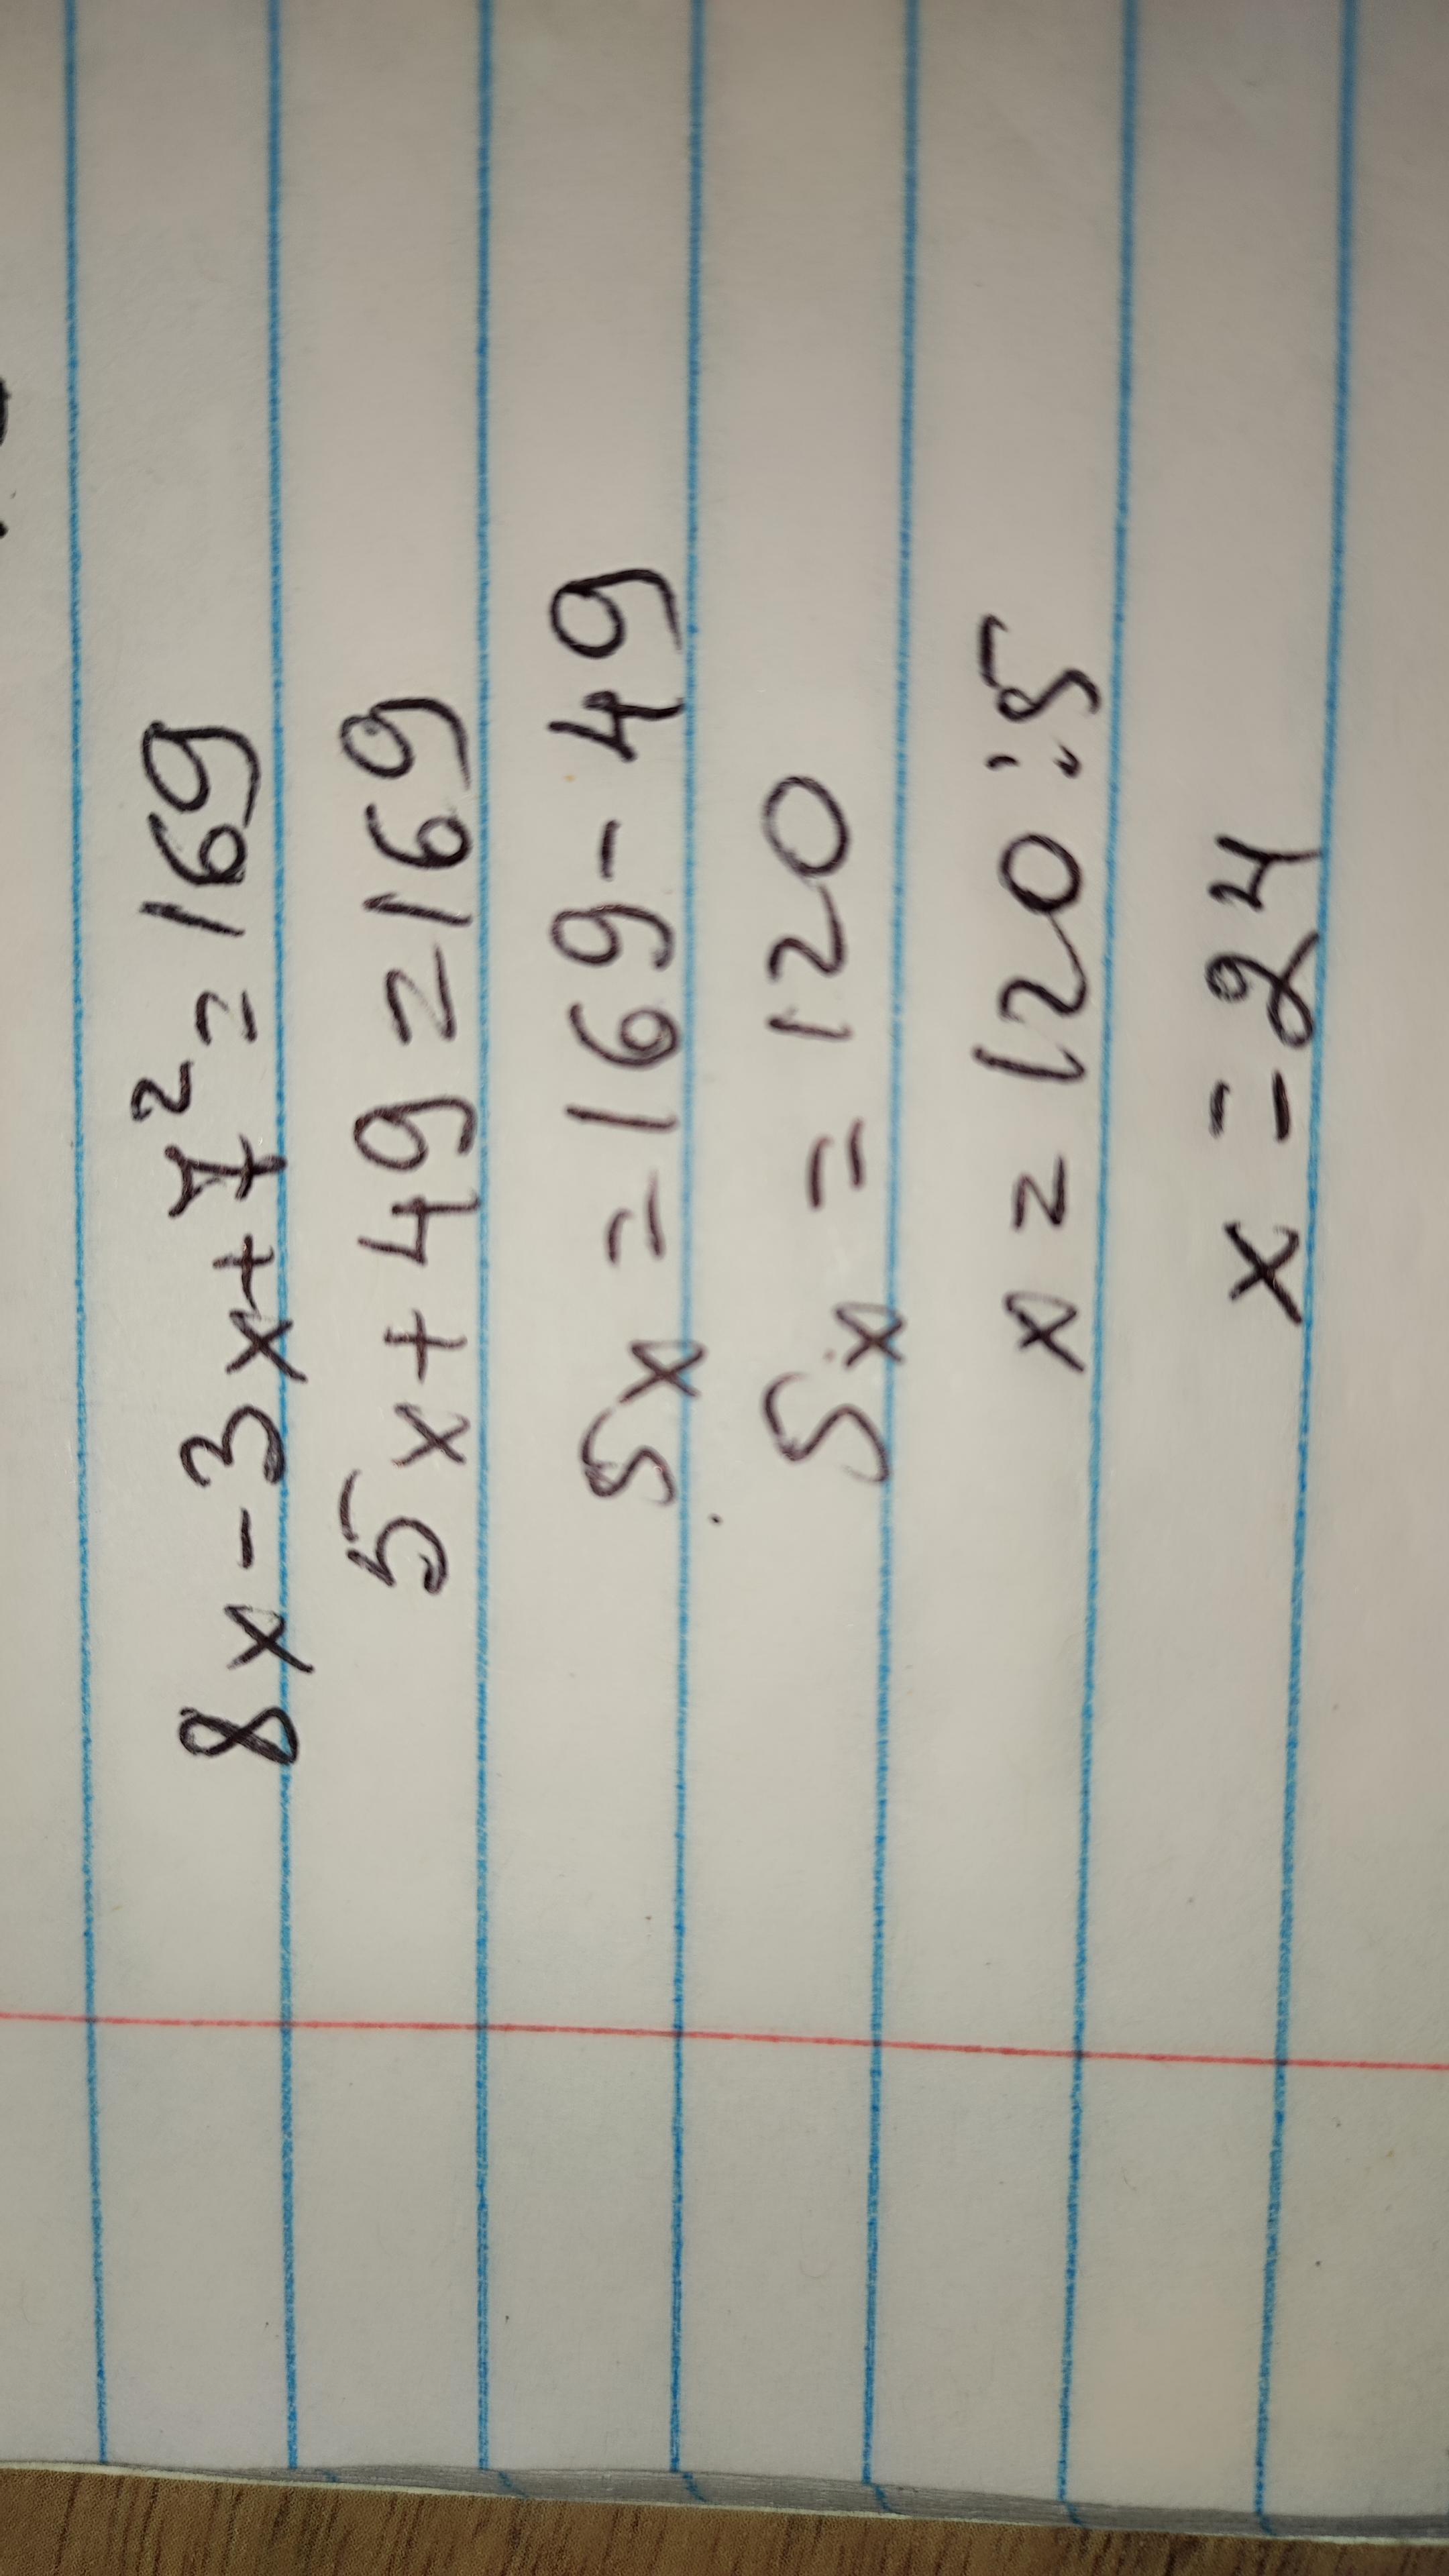 8x-3x+7²=169
5x+49=169
5x=169-49
5x=120
x=120:5
x=24